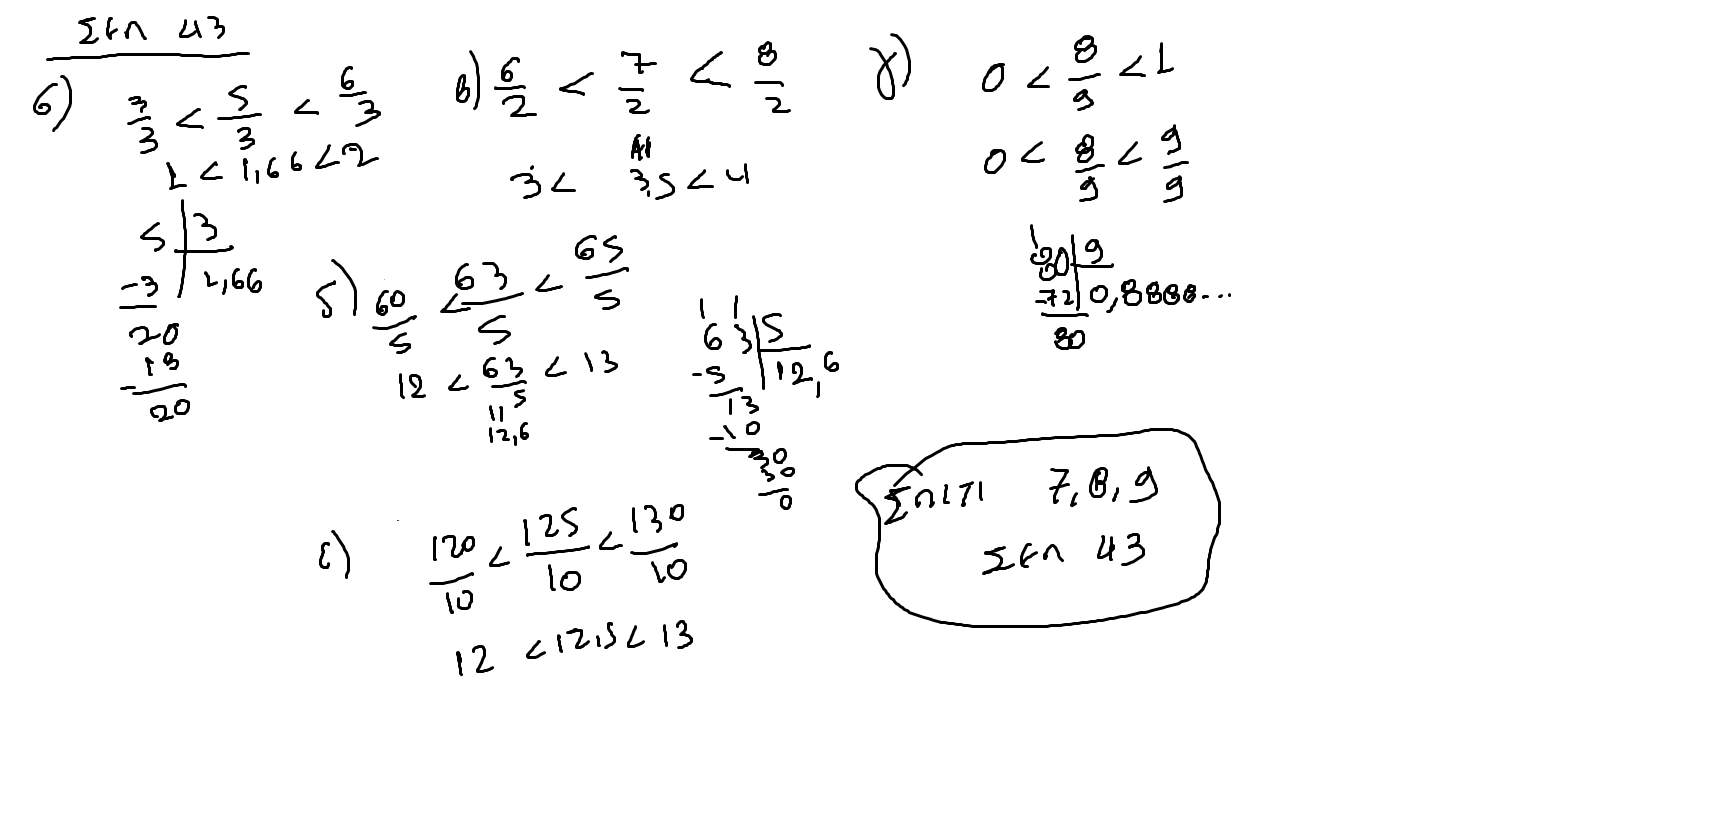 Σελ 43
6) 3/3 < 5/3 < 6/3
1 < 1,66 < 2
5 | 3
-3 | 1,66
20
-18
20
β) 6/2 < 7/2 < 8/2
3 < 3,5 < 4
γ) 0 < 8/9 < 1
0 < 8/9 < 9/9
80 | 9
-72 | 0,8888...
80
δ) 60/5 < 63/5 < 65/5
12 < 63/5 < 13
12,6
63 | 5
-5 | 12,6
13
-10
30
30
0
ε) 120/10 < 125/10 < 130/10
12 < 12,5 < 13
Σπίτι 7, 8, 9
Σελ 43